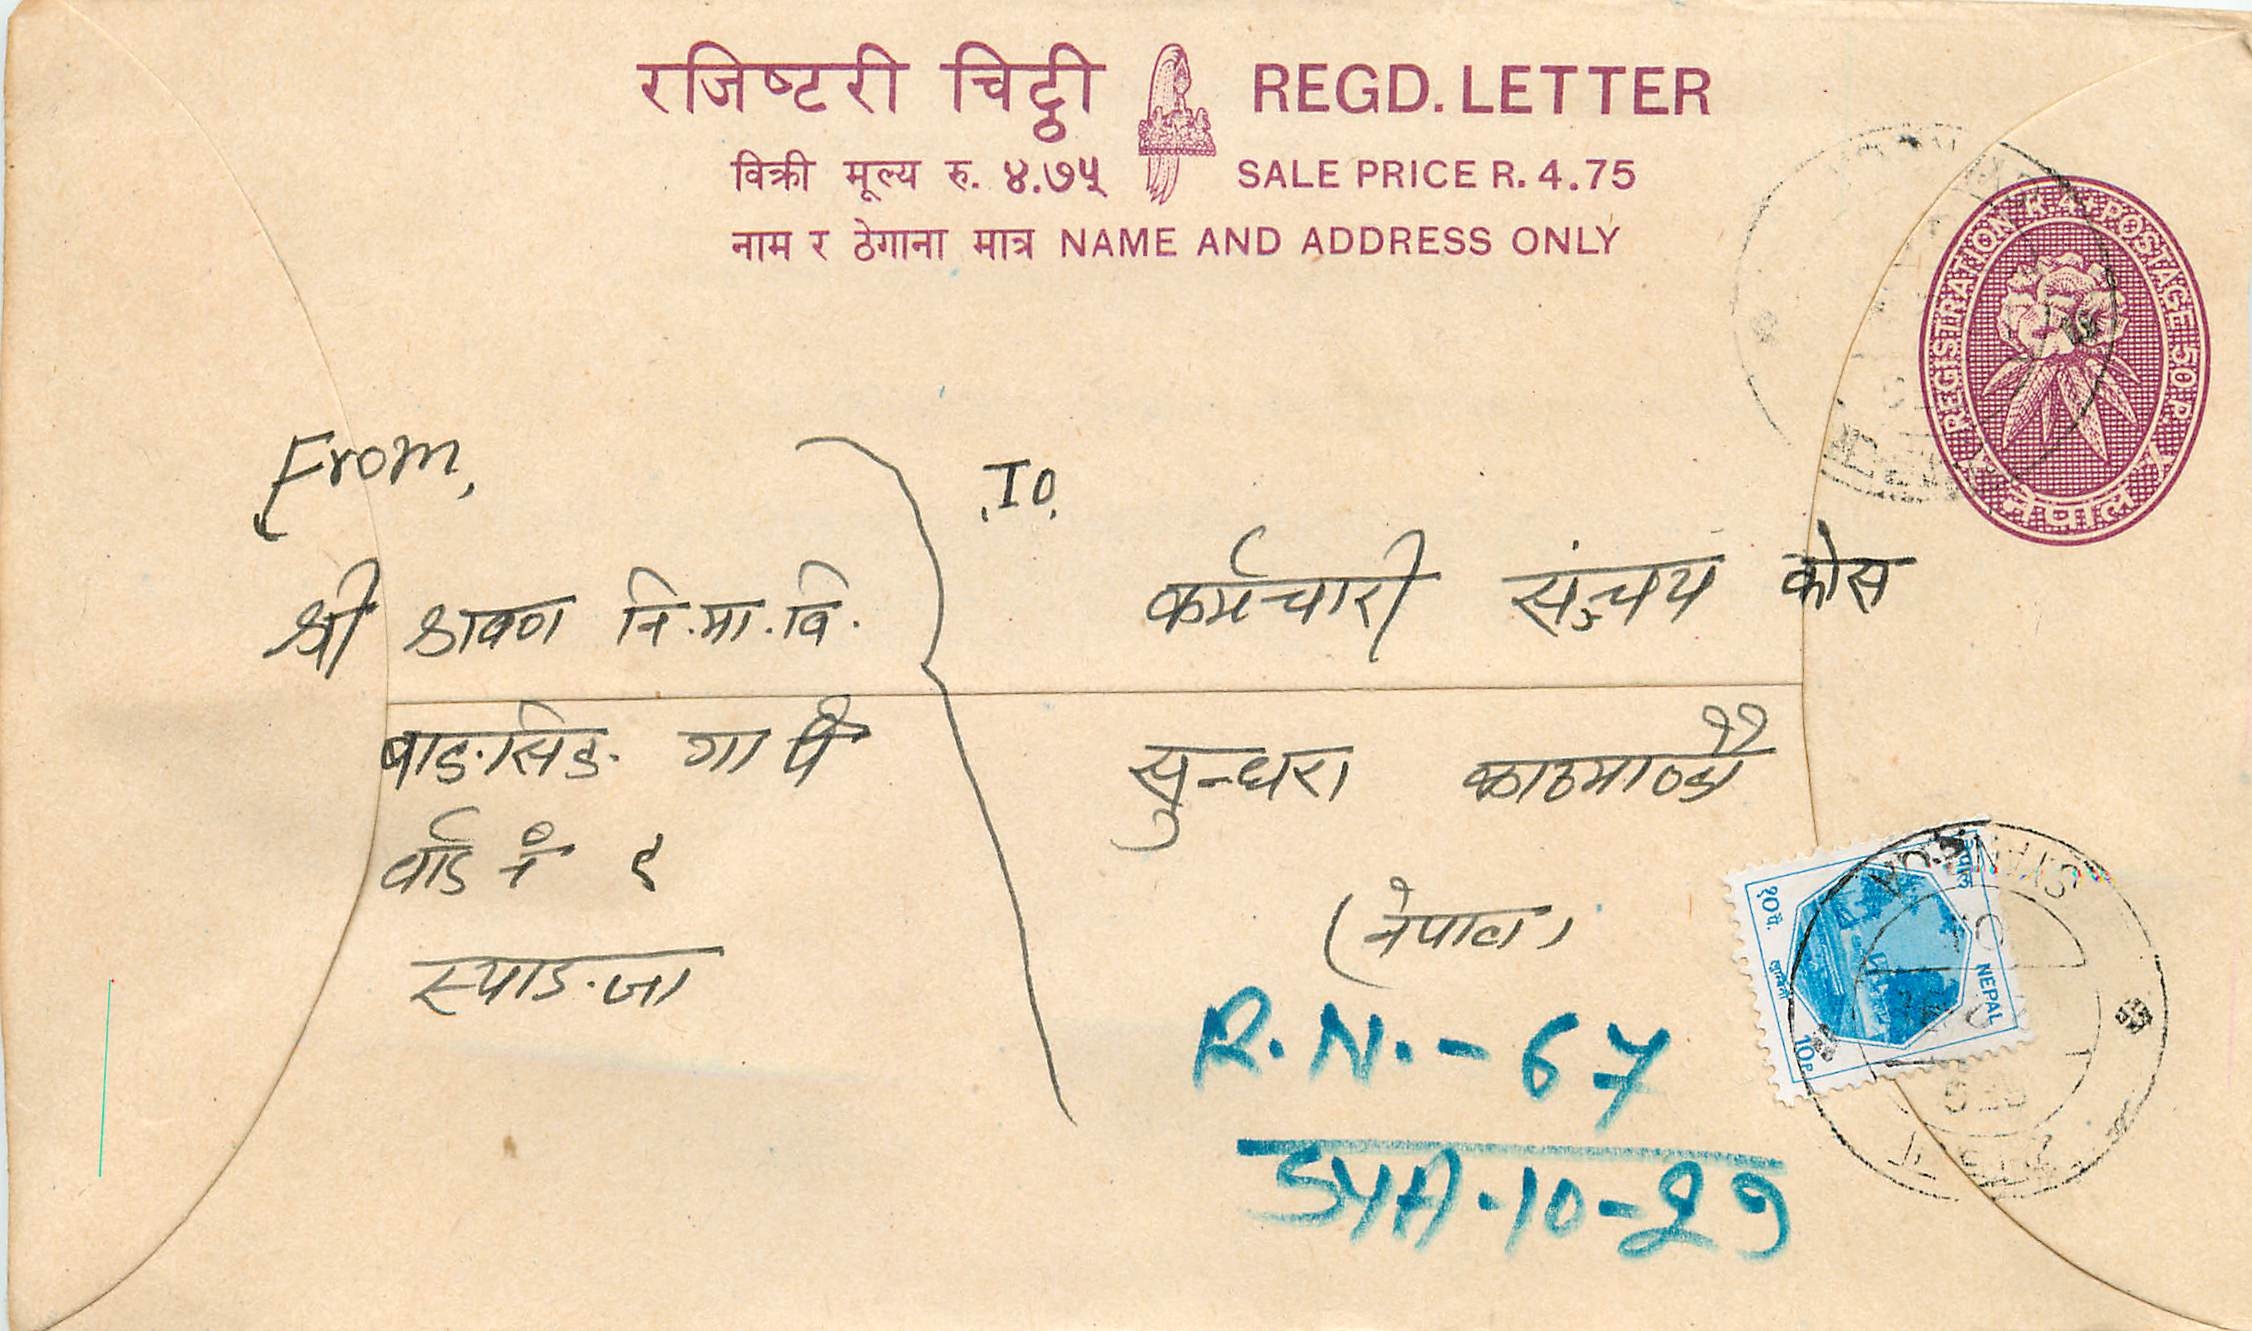 रजिष्टरी चिट्ठी REGD. LETTER
विक्री मूल्य रु. ४.७५ SALE PRICE R. 4.75
नाम र ठेगाना मात्र NAME AND ADDRESS ONLY
REGISTRATION R 4 + POSTAGE 50 P.
नेपाल
From,
श्री श्रावण नि.मा.वि.
बाङ.सिङ. गा पं
वार्ड नं ९
स्याङ.जा
To,
कर्मचारी संञ्चय कोस
सुन्धरा काठमाण्डौ
(नेपाल)
११
नेपाल
१० पै.
NEPAL
10 P
SYANGJA
R.N.-67
SYA-10-29